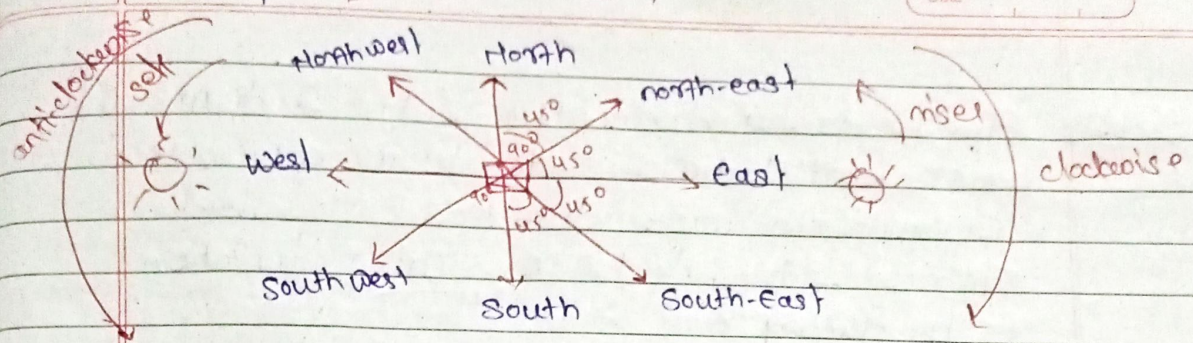 anticlockwise
set
Northwest
North
north-east
rises
45°
90°
45°
West
East
clockwise
90
45°
45°
Southwest
South
South-East